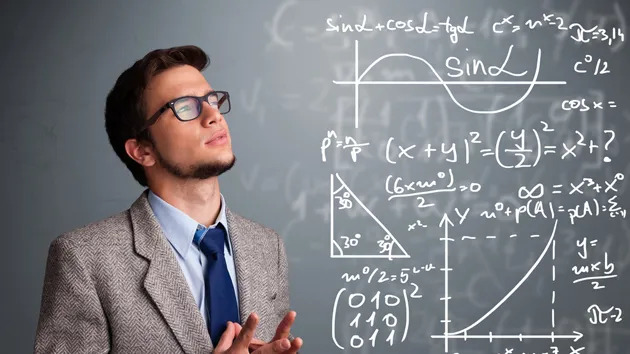 sinα + cosα = tgα
cˣ = nˣ-2
π = 3,14
sinα
c°/2
cos x =
pⁿ = n/p
(x + y)² = (y/2)² = x² + ?
(6xm°)/2 > 0
∞ = x³ + x°
30°
30° 30°
x²
y
n° + p(A) = p(A) =
y =
mxb/2
m°/2 = 5
(0 1 0
1 1 0
0 1 1)²
π = 2
x